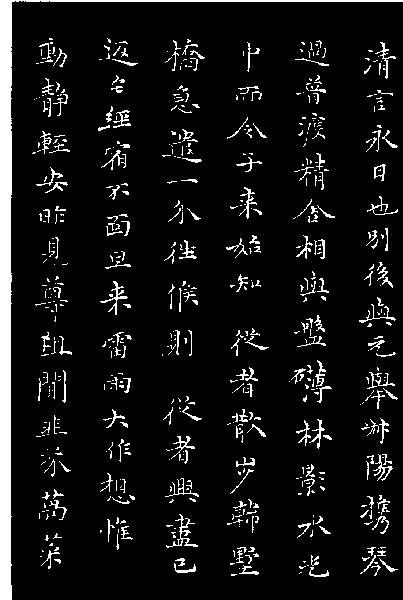 清言永日也別後與元舉卅陽携琴
過普渡精舍相與盤礴林影水光
中而令子来始知 從者散步韩墅
橋急遣一介往候則 從者興盡已
返矣經宿不面旦来雷雨大作想惟
動静輕安昨見尊